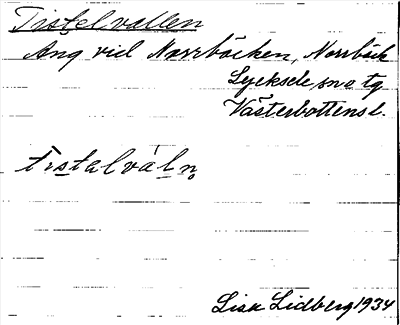 Tistelvallen
Äng vid Norrbäcken, Norrbäck
Lycksele sn o tg
Västerbottensl.
tistalváln
Lisa Lidberg 1934